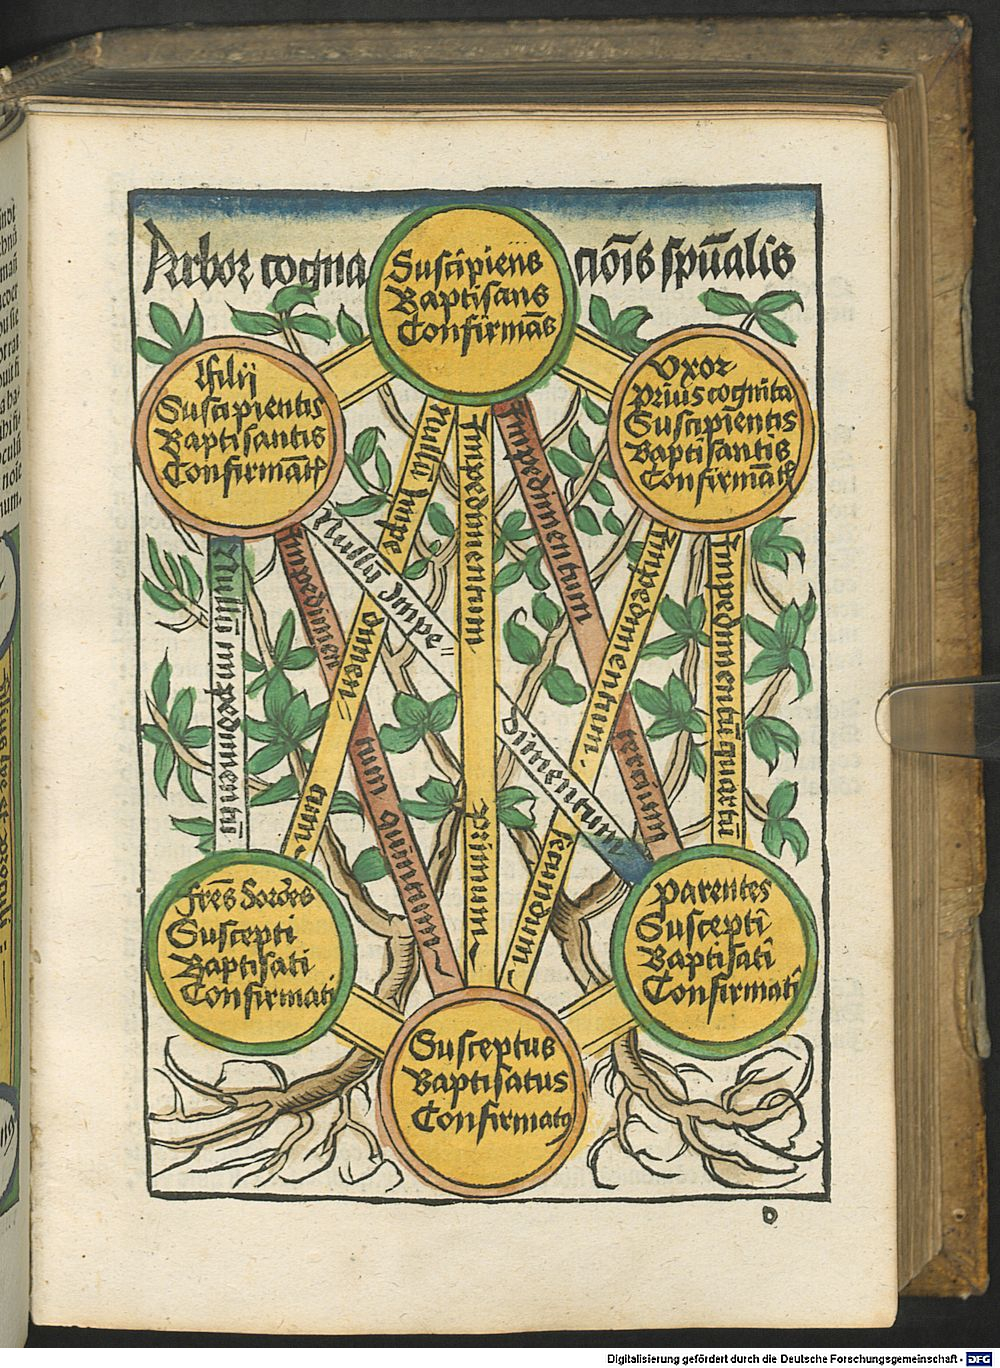 Arbor cogna
cioīs spūalis
Suscipiens
Baptisans
Confirmās
Filij
Suscipientis
Baptisantis
Confirmātꝭ
Vxor
Prius cognita
Suscipientis
Baptisantis
Confirmātꝭ
Nullū Impe
dimen=
tum
Impedimentum
primum
Impedimentum
tercium
Nullū Impe=
dimentum
Nullū impedimentū
Impedimen
tum quintum
Impedimentum
secundum
Impedimentū quartū
Fres̄ Sorōres
Suscepti
Baptisati
Confirmati
Parentes
Susceptī
Baptisatī
Confirmatī
Susceptus
Baptisatus
Confirmatꝯ
D
Digitalisierung gefördert durch die Deutsche Forschungsgemeinschaft - DFG